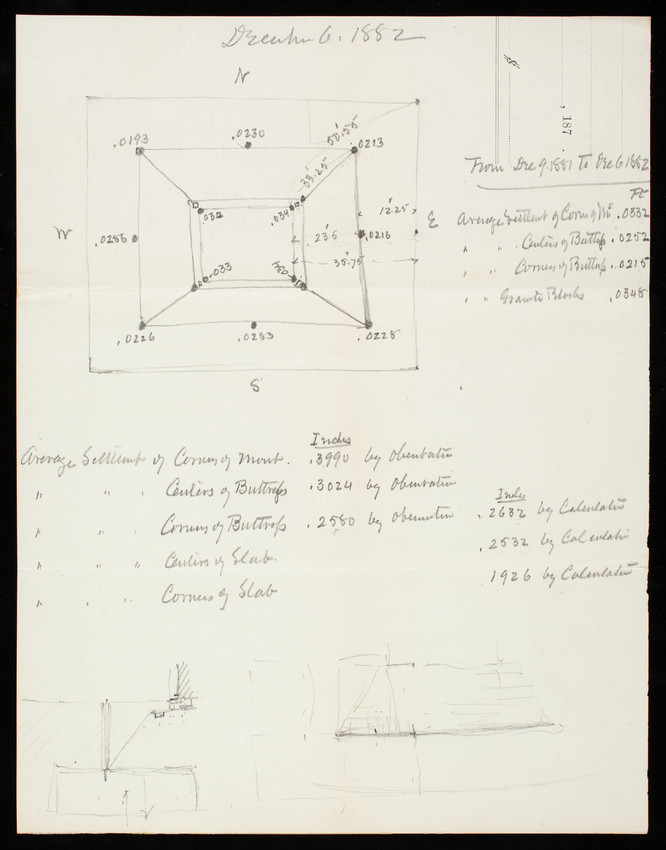 December 6. 1882
N
, 187 .
.0193
.0230
50.55'
.0213
33.25'
From Dec 9. 1881 To Dec 6 1882
Ft
.032
.034
12.25'
E
Average Settlmt of Corns of Mt .0332
W
.0256
23.5'
.0216
" " Centers of Buttrss .0252
35.75'
" " Corners of Buttrss .0215
.033
" " Granite Blocks .0348
.0226
.0283
.0228
S
Inches
Average Settlmt of Corners of Mont. .3990 by Observation
" " " Centers of Buttress .3024 by Observation
Inches
" " " Corners of Buttress .2580 by Observation .2632 by Calculation
" " " Centers of Slab. .2532 by Calculation
" " " Corners of Slab 1926 by Calculation